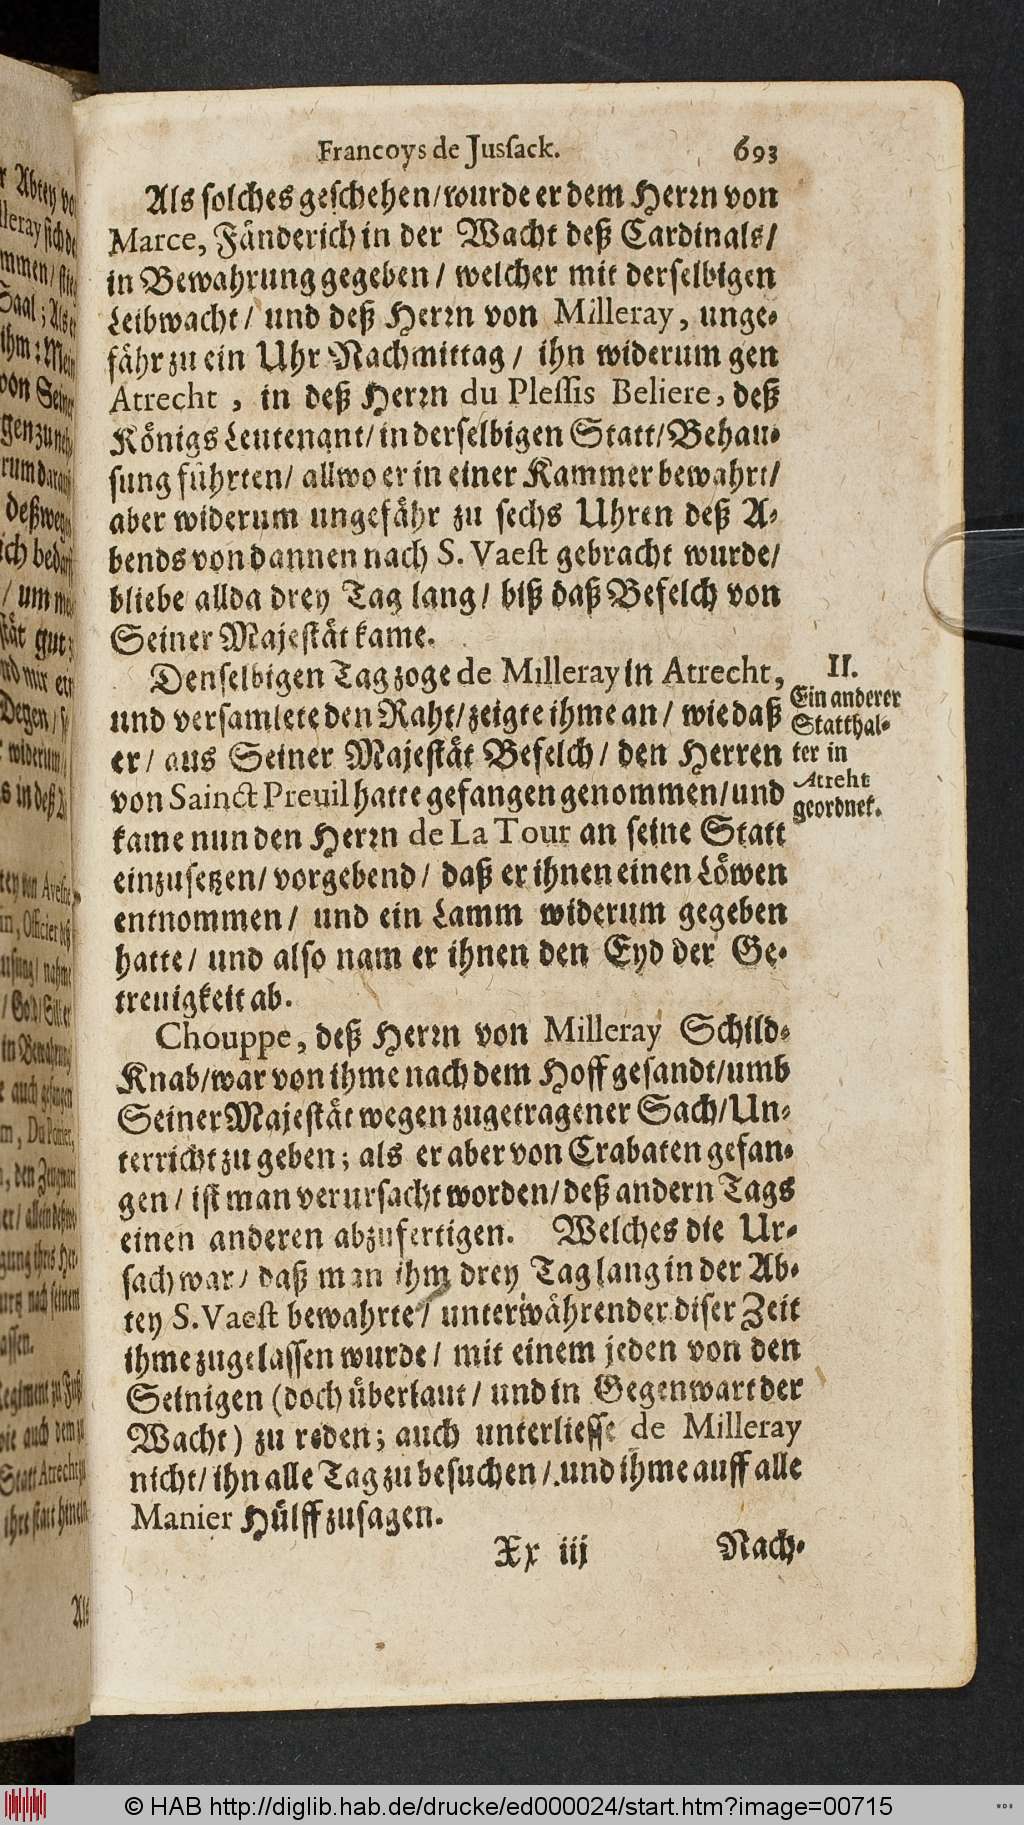 Francoys de Jusſack. 693
Als solches geschehen/wurde er dem Herrn von
Marce, Fänderich in der Wacht deß Cardinals/
in Bewahrung gegeben/ welcher mit derselbigen
Leibwacht/ und deß Herrn von Milleray, unge-
fähr zu ein Uhr Nachmittag/ ihn widerum gen
Atrecht, in deß Herrn du Pleſſis Beliere, deß
Königs Leutenant/in derselbigen Statt/Behau-
sung führten/ allwo er in einer Kammer bewahrt/
aber widerum ungefähr zu sechs Uhren deß A-
bends von dannen nach S. Vaeſt gebracht wurde/
bliebe allda drey Tag lang/ biß daß Befelch von
Seiner Majestät kame.
Denselbigen Tag zoge de Milleray in Atrecht,
und versamlete den Raht/zeigte ihme an/ wie daß
er/ aus Seiner Majestät Befelch/ den Herren
von Sainct Preuil hatte gefangen genommen/und
kame nun den Herrn de La Tour an seine Statt
einzusetzen/ vorgebend/ daß er ihnen einen Löwen
entnommen/ und ein Lamm widerum gegeben
hatte/ und also nam er ihnen den Eyd der Ge-
treuigkeit ab.
II.
Ein anderer
Statthal-
ter in
Atreht
geordnet.
Chouppe, deß Herrn von Milleray Schild-
Knab/war von ihme nach dem Hoff gesandt/umb
Seiner Majestät wegen zugetragener Sach/Un-
terricht zu geben; als er aber von Crabaten gefan-
gen/ ist man verursacht worden/deß andern Tags
einen anderen abzufertigen. Welches die Ur-
sach war/ daß man ihm drey Tag lang in der Ab-
tey S. Vaeſt bewahrte/ unterwährender diser Zeit
ihme zugelassen wurde/ mit einem jeden von den
Seinigen (doch überlaut/ und in Gegenwart der
Wacht) zu reden; auch unterliesse de Milleray
nicht/ ihn alle Tag zu besuchen/ und ihme auff alle
Manier Hülff zusagen.
Xx iij Nach-
© HAB http://diglib.hab.de/drucke/ed000024/start.htm?image=00715